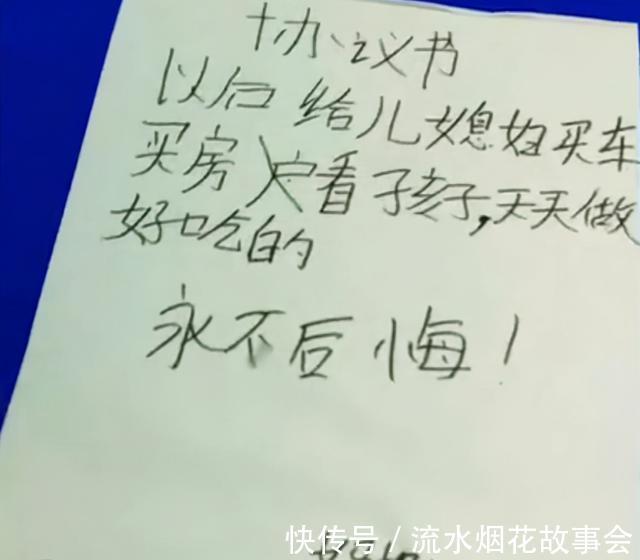 协议书
以后给儿媳妇买车
买房看孩子,天天做
好吃的
永不后悔!
快传号/流水烟花故事会